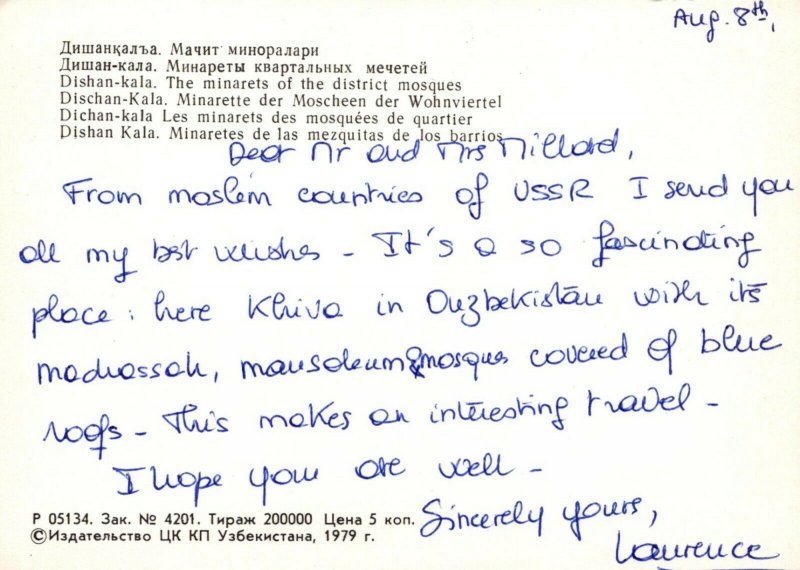 Aug. 8th,
Дишанқалъа. Мачит миноралари
Дишан-кала. Минареты квартальных мечетей
Dishan-kala. The minarets of the district mosques
Dischan-Kala. Minarette der Moscheen der Wohnviertel
Dichan-kala Les minarets des mosquées de quartier
Dishan Kala. Minaretes de las mezquitas de los barrios
Dear Mr and Mrs Millard,
From moslem countries of USSR I send you
all my best wishes - It's a so fascinating
place : here Khiva in Ouzbekistan with its
madrassah, mausoleum & mosques covered of blue
roofs - This makes an interesting travel -
I hope you are well -
Sincerely yours,
Laurence
Р 05134. Зак. № 4201. Тираж 200000 Цена 5 коп.
©Издательство ЦК КП Узбекистана, 1979 г.